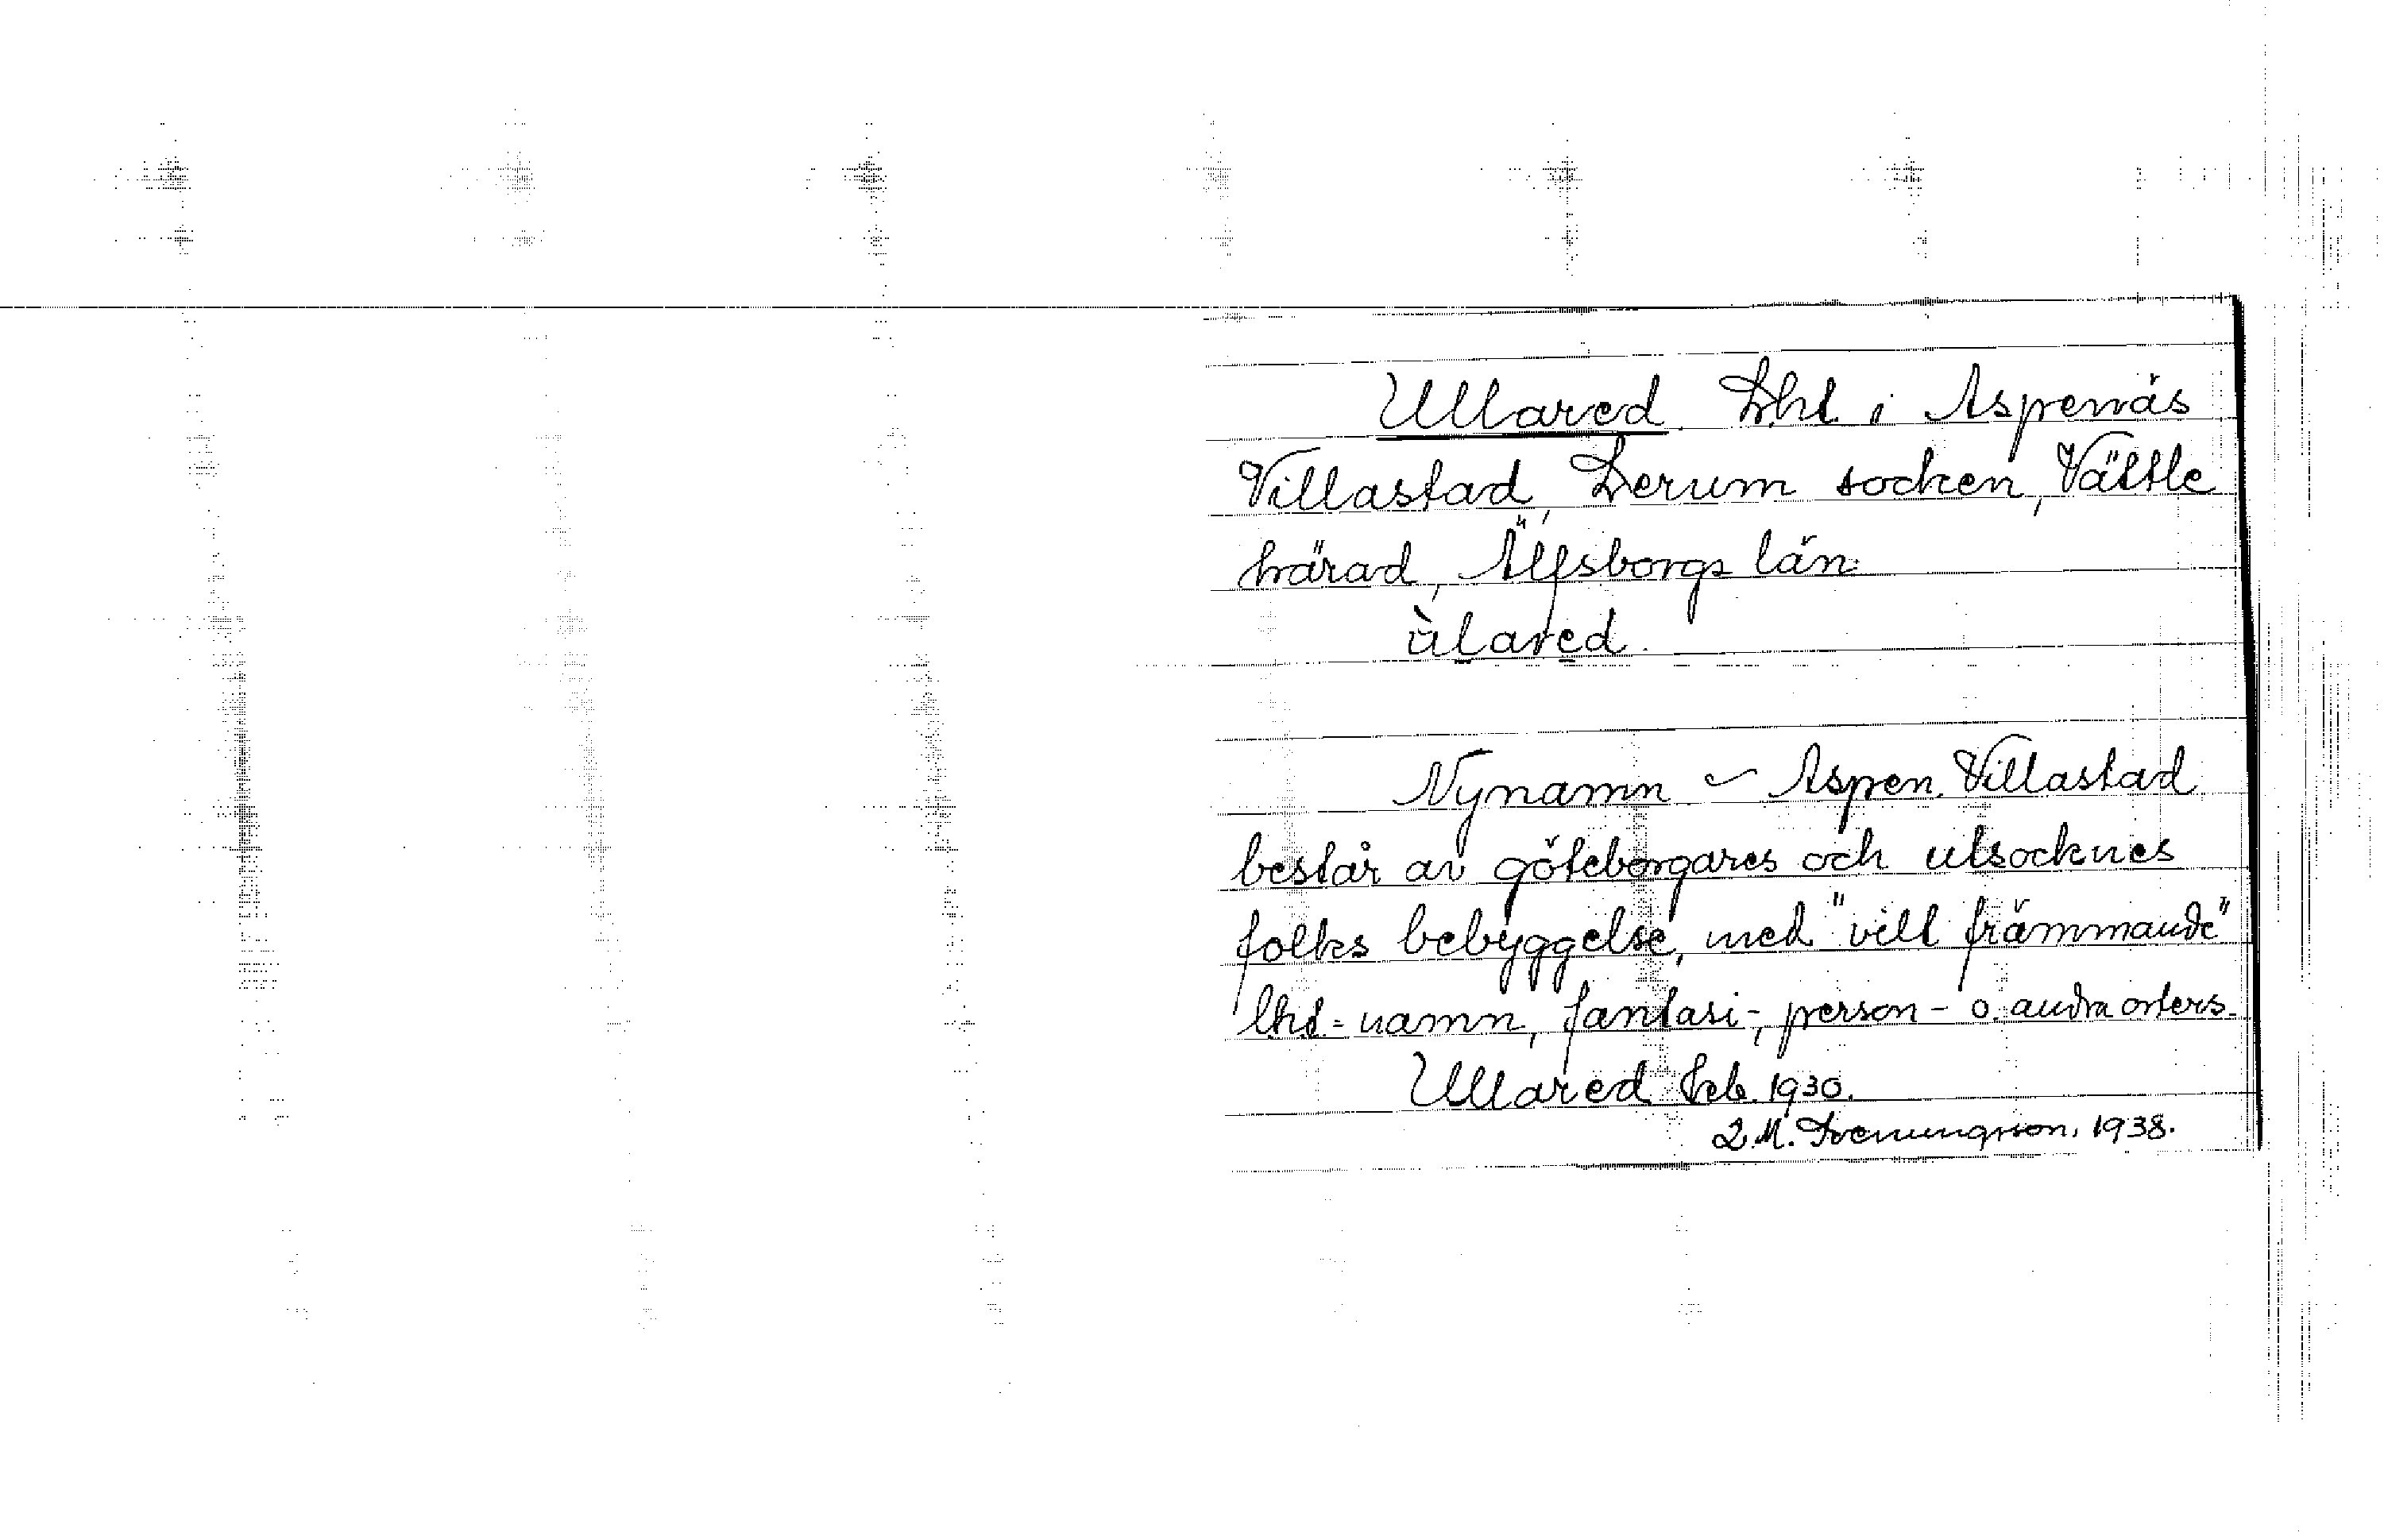 Ullared. Lht i Aspenäs
Villastad, Lerum socken, Vättle
härad, Älfsborgs län.
ùlared.
Nynamn ~ Aspen. Villastad
består av göteborgares och utsocknes
folks bebyggelse, med "vilt främmande"
lht-namn, fantasi-, person- o. andra orters.
Ullared Feb. 1930.
2. M. Svenungsson. 1938.